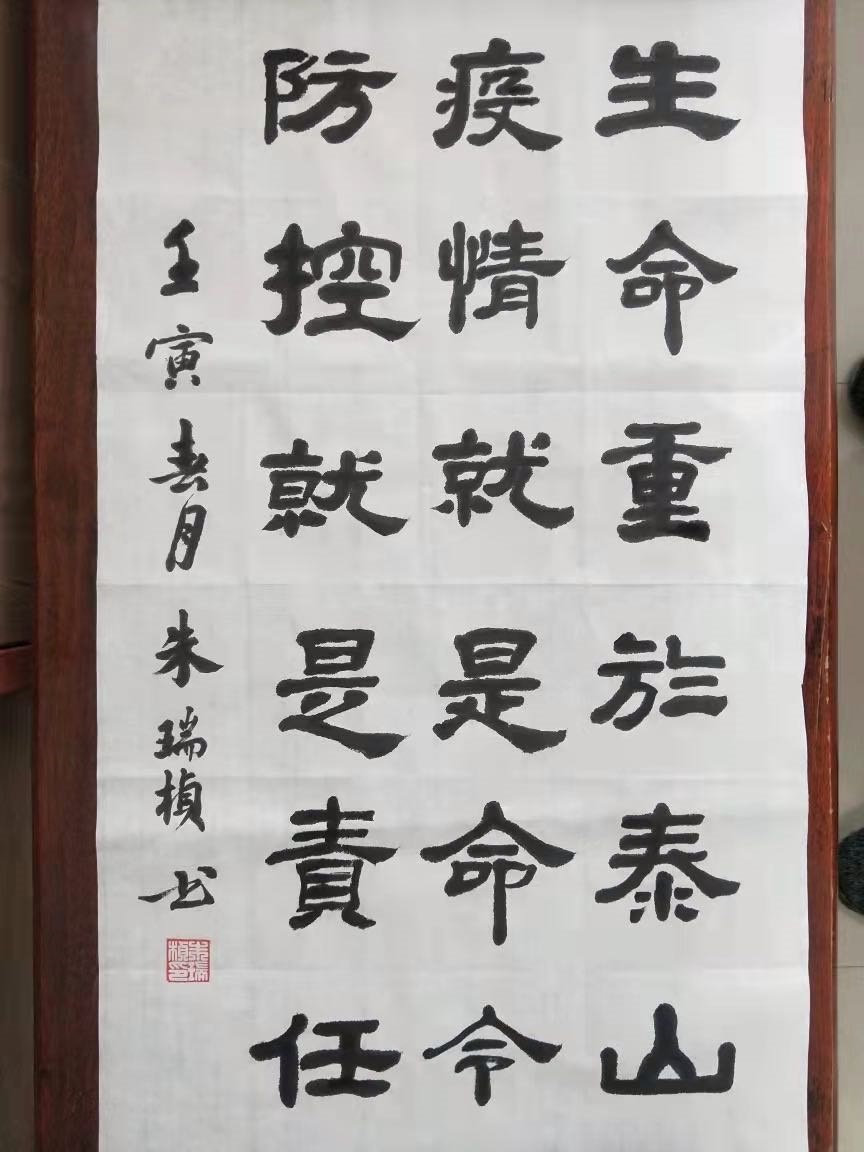 生命重於泰山
疫情就是命令
防控就是責任
壬寅春月朱瑞楨书
朱瑞楨印